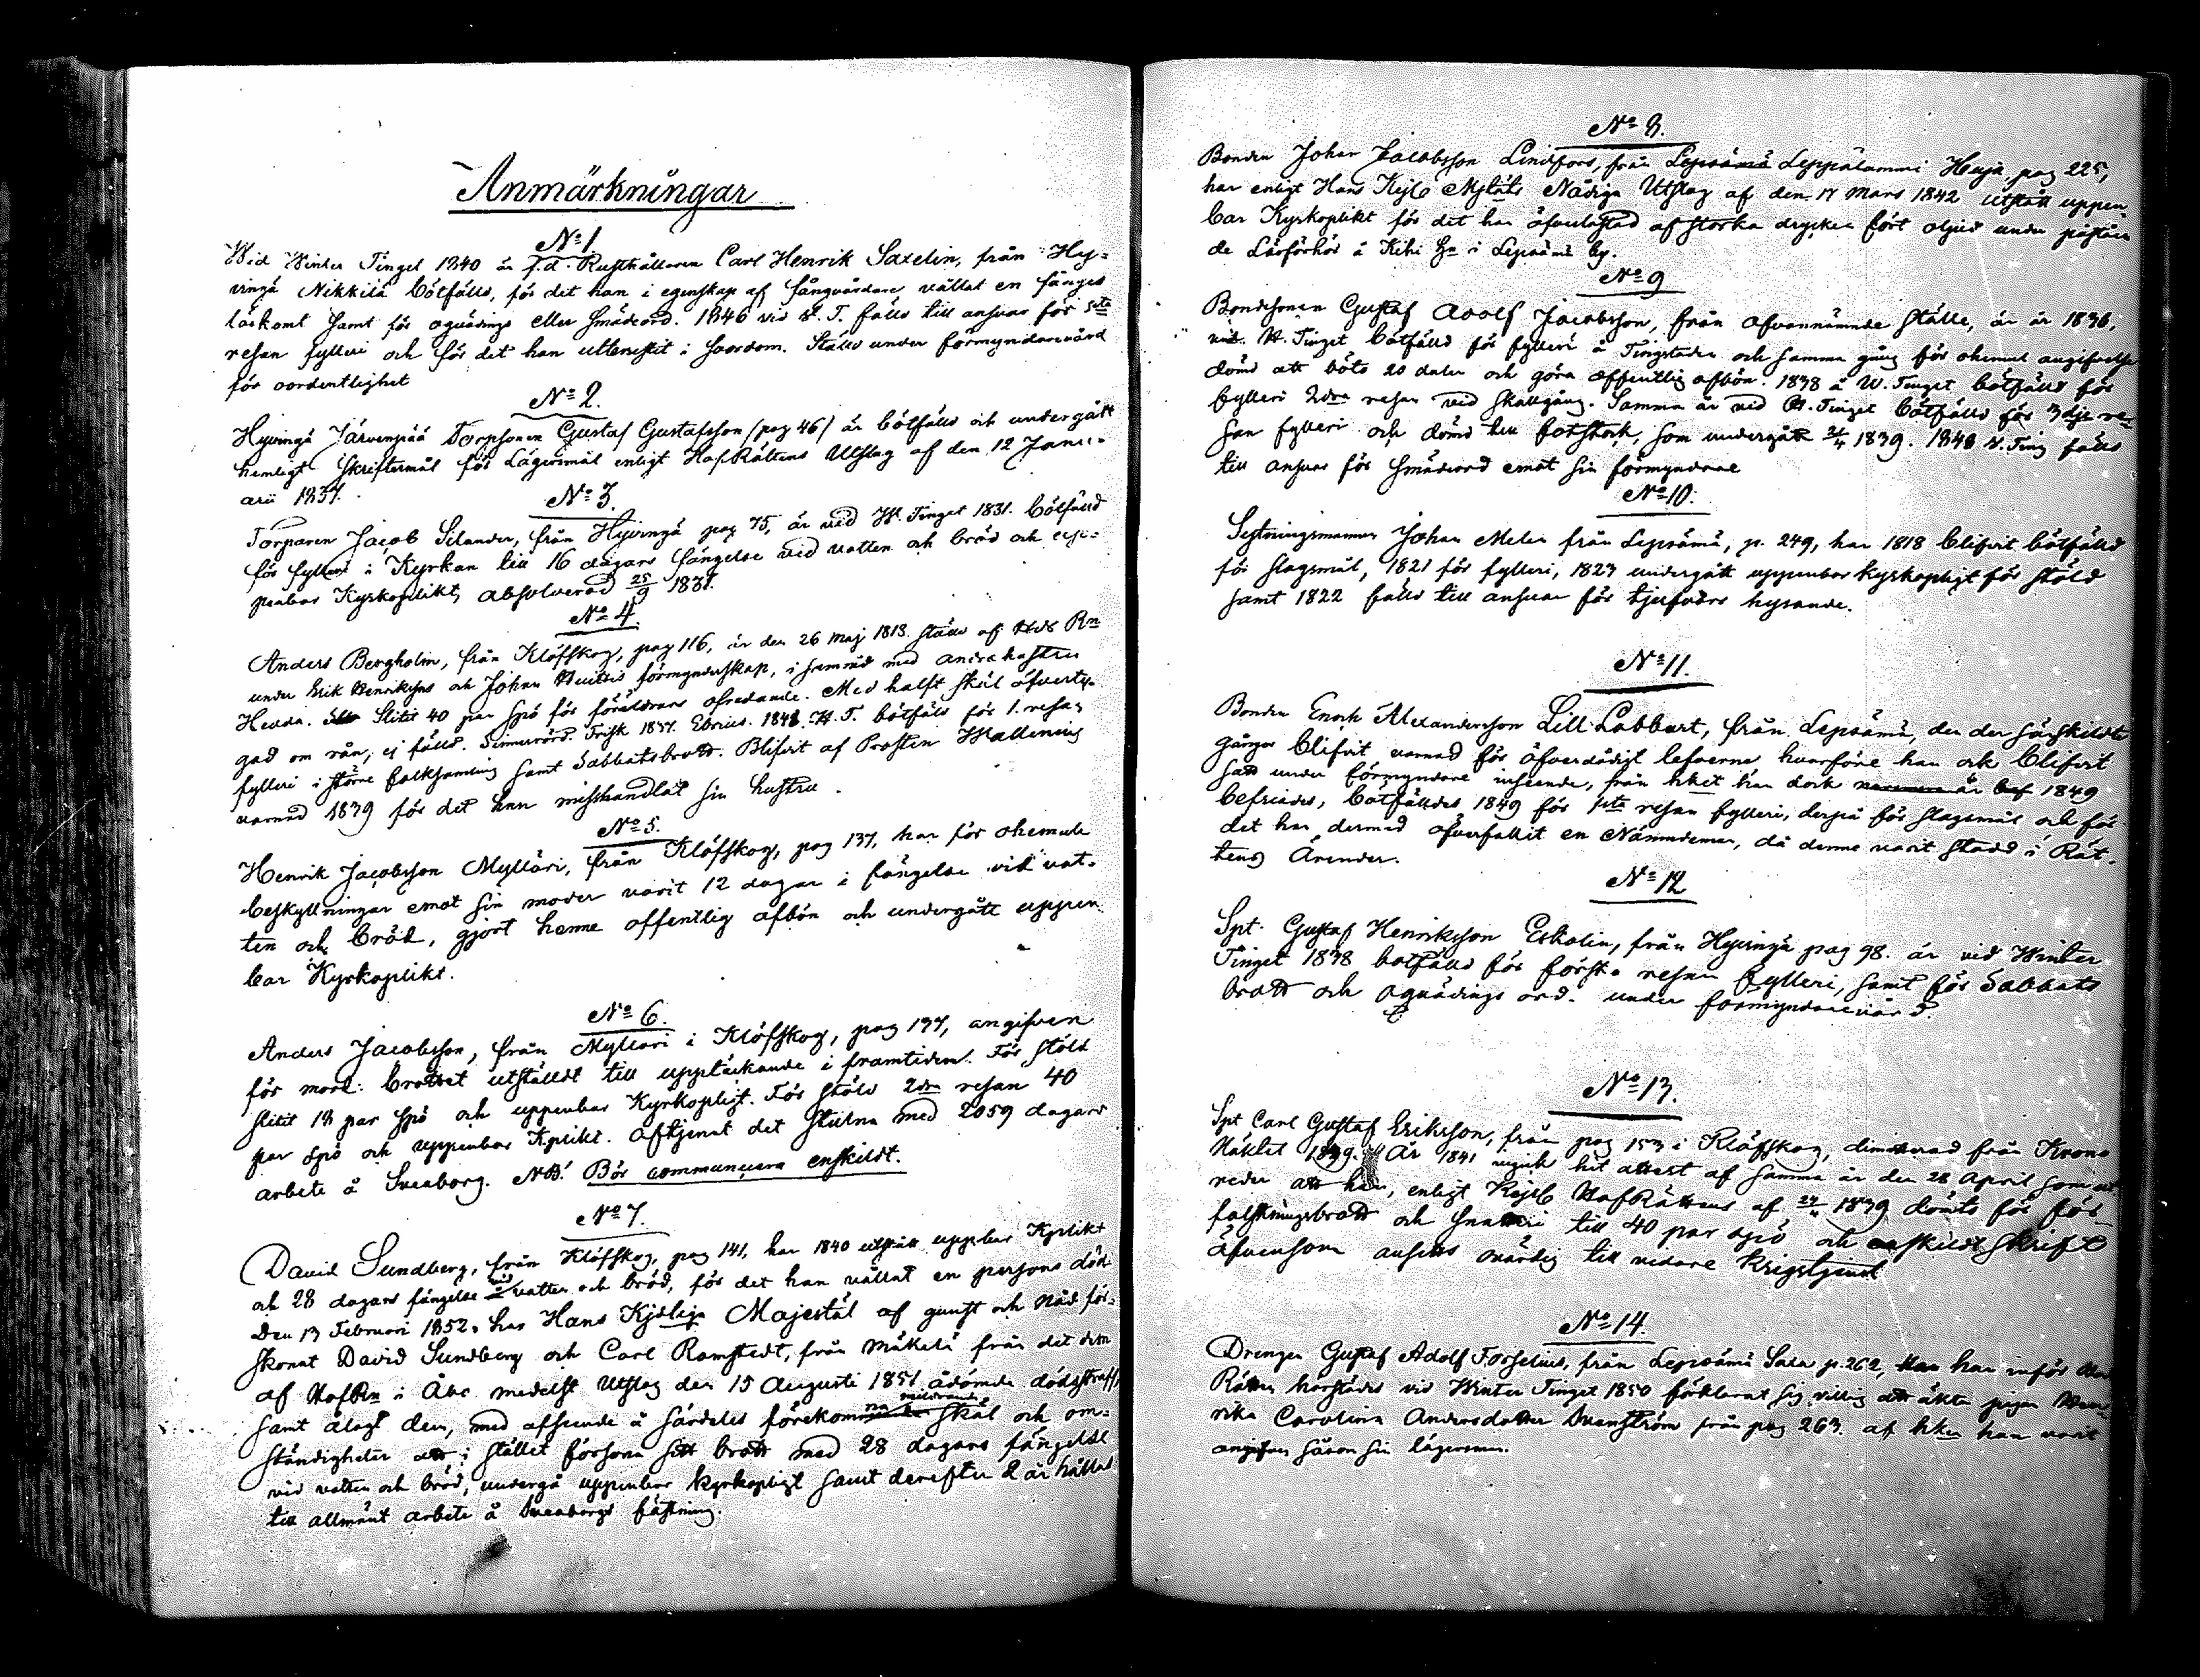 Anmärkningar
No 1.
Wid Winter Tinget 1840 är f.d. Rusthållaren Carl Henrik Saxelin, från Hy-
vingä Nikkilä bötfälld, för det han i egenskap af fångvårdare vållat en fånges
löskomst samt för oqvädings eller smädeord. 1846 vid V. T. fälld till ansvar för 5te
resan fylleri och för det han utbrustit i svordom. Ställd under förmyndarevård
för oordentlighet
No 2.
Hyvingä Järvenpää Torpsonen Gustaf Gustafsson (pag 46) är bötfälld och undergått
hemligt skriftermål för Lägersmål enligt HofRättens Utslag af den 12 Janu-
arii 1837.
No 3.
Torparen Jacob Selander, från Hyvingä pag 75, är vid W. Tinget 1831 bötfälld
för fylleri i Kyrkan till 16 dagars fängelse vid vatten och bröd och uppen-
penbar Kyrkoplikt, absolverad 25/9 1831.
No 4.
Anders Bergholm, från Klöfskog, pag 116, är den 26 maj 1813 ställd af HdsRn
under Erik Henrikssons och Johan förmynderskap, i samråd med andra hustru
Hedda. Slitit 40 par spö för föräldrars ofredande. Med halft skäl öfverty-
gad om rån, ej fälld. Frisk 1837. Ebrius. 1848 H. T. bötfälld för 1. resan
fylleri i större folksamling samt Sabbatsbrott. Blifvit af Prosten Wallenius
varnad 1839 för det han misshandlat sin hustru.
No 5.
Henrik Jacobsson Mylläri, från Klöfskog, pag 137, har för ohemula
beskyllningar emot sin moder varit 12 dagar i fängelse vid vat-
ten och bröd, gjort henne offentlig afbön och undergått uppen-
bar Kyrkoplikt.
No 6.
Anders Jacobsson, från Mylläri i Klöfskog, pag 137, angifven
för mord. Brottet utstäldt till upptäckande i framtiden. För stöld
slitit 18 par spö och uppenbar Kyrkopligt. För stöld 2dra resan 40
par spö och uppenbar Kplikt. Aftjenat det stulna med 2059 dagars
arbete å Sveaborg. NB! Bör communicera enskildt.
No 7.
David Sundberg, från Klöfskog, pag 141, har 1840 utstått uppbar Kplikt
och 28 dagars fängelse vid vatten och bröd, för det han vållat en persons död
Den 13 Februari 1852 har Hans Kejslige Majestät af gunst och nåd för-
skonat David Sundberg och Carl Ramstedt, från Mäkelä från det dem
af HofRn i Åbo medelst Utslag den 15 Augusti 1851 ådömda dödsstraff,
samt ålagt dem, med afseende å särdeles förekommande mildrande skäl och om-
ständigheter att i stället försona sitt brott med 28 dagars fängelse
vid vatten och bröd, undergå uppenbar kyrkopligt samt derefter 2 år hållas
till allmänt arbete å Sveaborgs fästning.
No 8.
Bonden Johan Jacobsson Lindfors, från Lepsämä Leppälammi Heijä, pag 225,
har enligt Hans Kejs Mjtäts Nådiga Utslag af den 17 Mars 1842 utstått uppen-
bar Kyrkoplikt för det han öfverlastad af starka drycker fört oljud under påståen
de Läsförhör å Kihi Hn i Lepsämä by.
No 9
Bondesonen Gustaf Adolf Jacobsson, från ofvannämnde ställe, är år 1836,
vid H. Tinget bötfälld för fylleri å Tingstaden och samma gång för ohemul angifvelse
dömd att böta 20 daler och göra offentlig afbön. 1838 å W. Tinget bötfälld för
fylleri 2dra resan vid skallgång. Samma år vid H. Tinget bötfälld för 3dje re-
san fylleri och dömd till fotstock, som undergått 1839. 1848 V. Ting fälld
till ansvar för smädeord emot sin förmyndare
No 10.
Sytningsmannen Johan Melen från Lepsämä, p. 249, har 1818 blifvit bötfälld
för slagsmål, 1821 för fylleri, 1823 undergått uppenbar kyrkopligt för stöld
samt 1822 fälld till ansvar för tjufvars hysande.
No 11.
Bonden Enock Alexandersson Lill Labbart, från Lepsämä, den der särskildt
gånger blifvit varnad för öfverdådigt lefverne, hvarföre han ock blifvit
satt under förmyndare inseende, från hket han dock 1849
befriades, bötfälldes 1849 för 1sta resan fylleri, derpå för slagsmål och för
det han dermed öfverfallit en Nämndeman, då denne varit stadd i Rät-
tens Ärender.
No 12
Spt. Gustaf Henriksson Eskolin, från Hyvingä pag 98. är vid Winter
Tinget 1838 botfälld för första resan fylleri, samt för Sabbats
brott och oqvädings ord. under förmyndarevård.
No 13.
Spt Carl Gustaf Eriksson, från pag 153 i Klöfskog, dimitterad från Krono
Häktet 1839. År 1841 ingick hit attest af samma år den 28 April
att han, enligt Kejs HofRättens af 1839 dömts för för-
falskningsbrott och snatteri till 40 par spö och enskildt Skrift
äfvensom ansetts ovärdig till vidare krigstjenst
No 14.
Drengen Gustaf Adolf Forselius, från Lepsämä Sala p. 262, har inför
Rätten härstädes vid Winter Tinget 1850 förklarat sig villig att äkta pigan
rika Carolina Andersdotter Svanström från pag 263. af hken han varit
angifven såsom sin lägersman.